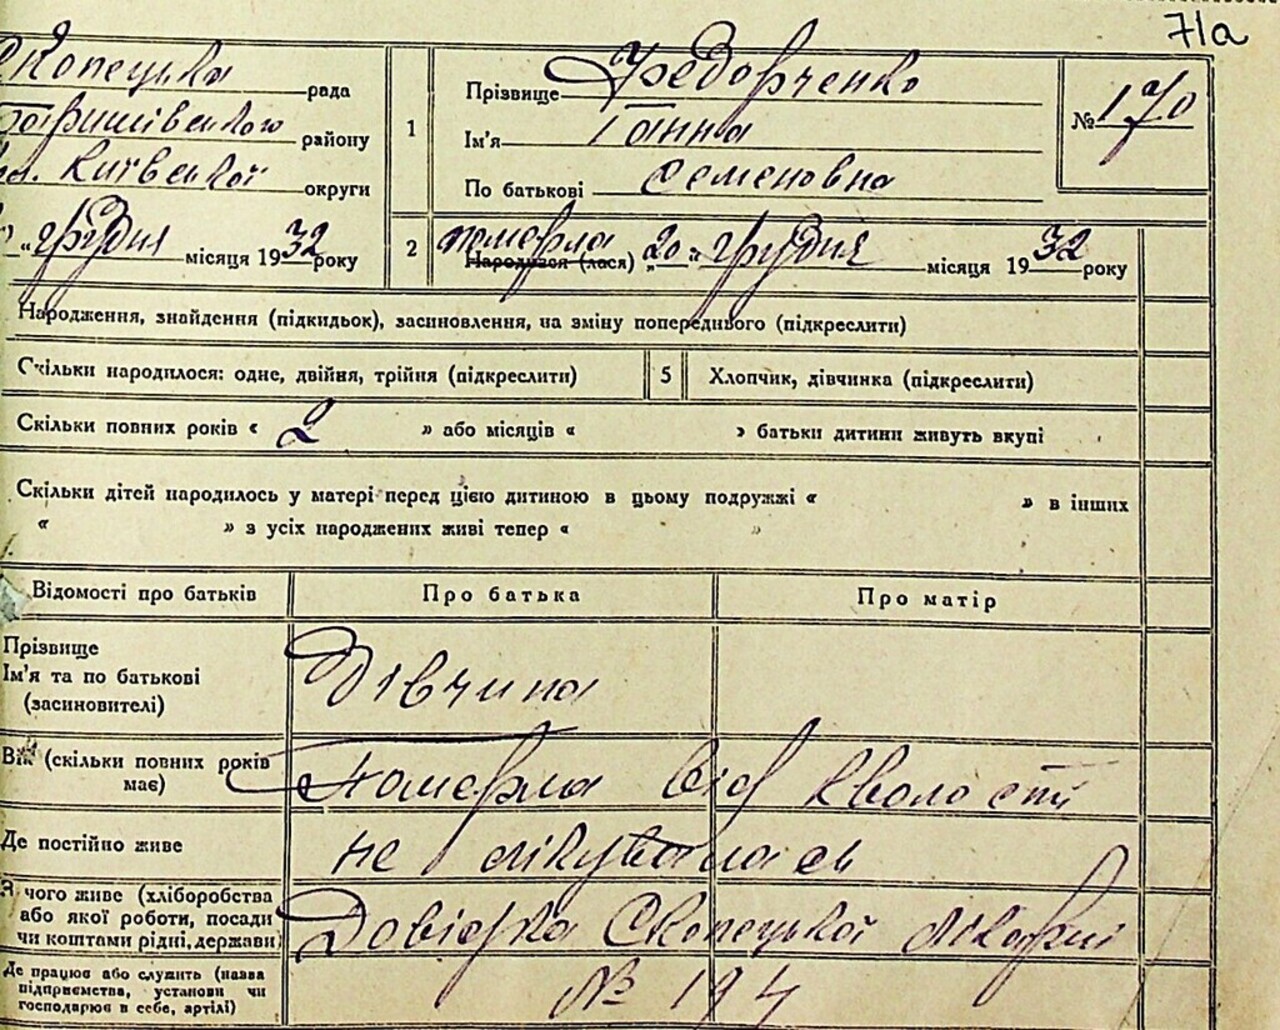 71а
Скопецька рада
Баришівського району
Київської округи
грудня місяця 1932 року
1
Прізвище Федорченко
Ім'я Ганна
По батькові Семеновна
№ 170
2
померла
Народився (лася) „20" грудня місяця 1932 року
Народження, знайдення (підкидьок), засиновлення, на зміну попереднього (підкреслити)
Скільки народилося: одне, двійня, трійня (підкреслити)
5
Хлопчик, дівчинка (підкреслити)
Скільки повних років « 2 » або місяців « » батьки дитини живуть вкупі
Скільки дітей народилось у матері перед цією дитиною в цьому подружжі « » в інших
« » з усіх народжених живі тепер « »
Відомості про батьків
Про батька
Про матір
Прізвище
Ім'я та по батькові
(засиновителі)
Дівчина
Вік (скільки повних років
має)
померла від кволости
Де постійно живе
не лікувалась
З чого живе (хліборобства
або якої роботи, посади
чи коштами рідні, держави)
Довідка Скопецької лікарні
Де працює або служить (назва
підприємства, установи чи
господарює в себе, артілі)
№ 194